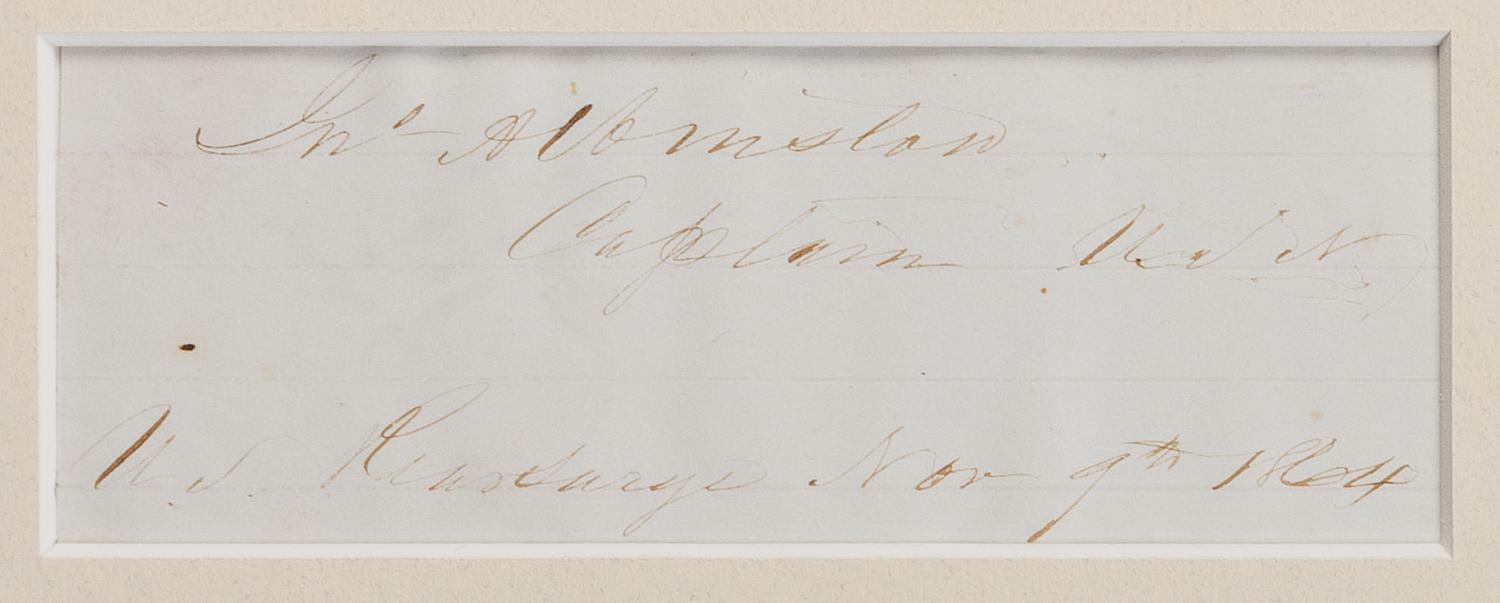 Jno A Winslow
Captain U S N
U S Kearsarge Nov 9th 1864